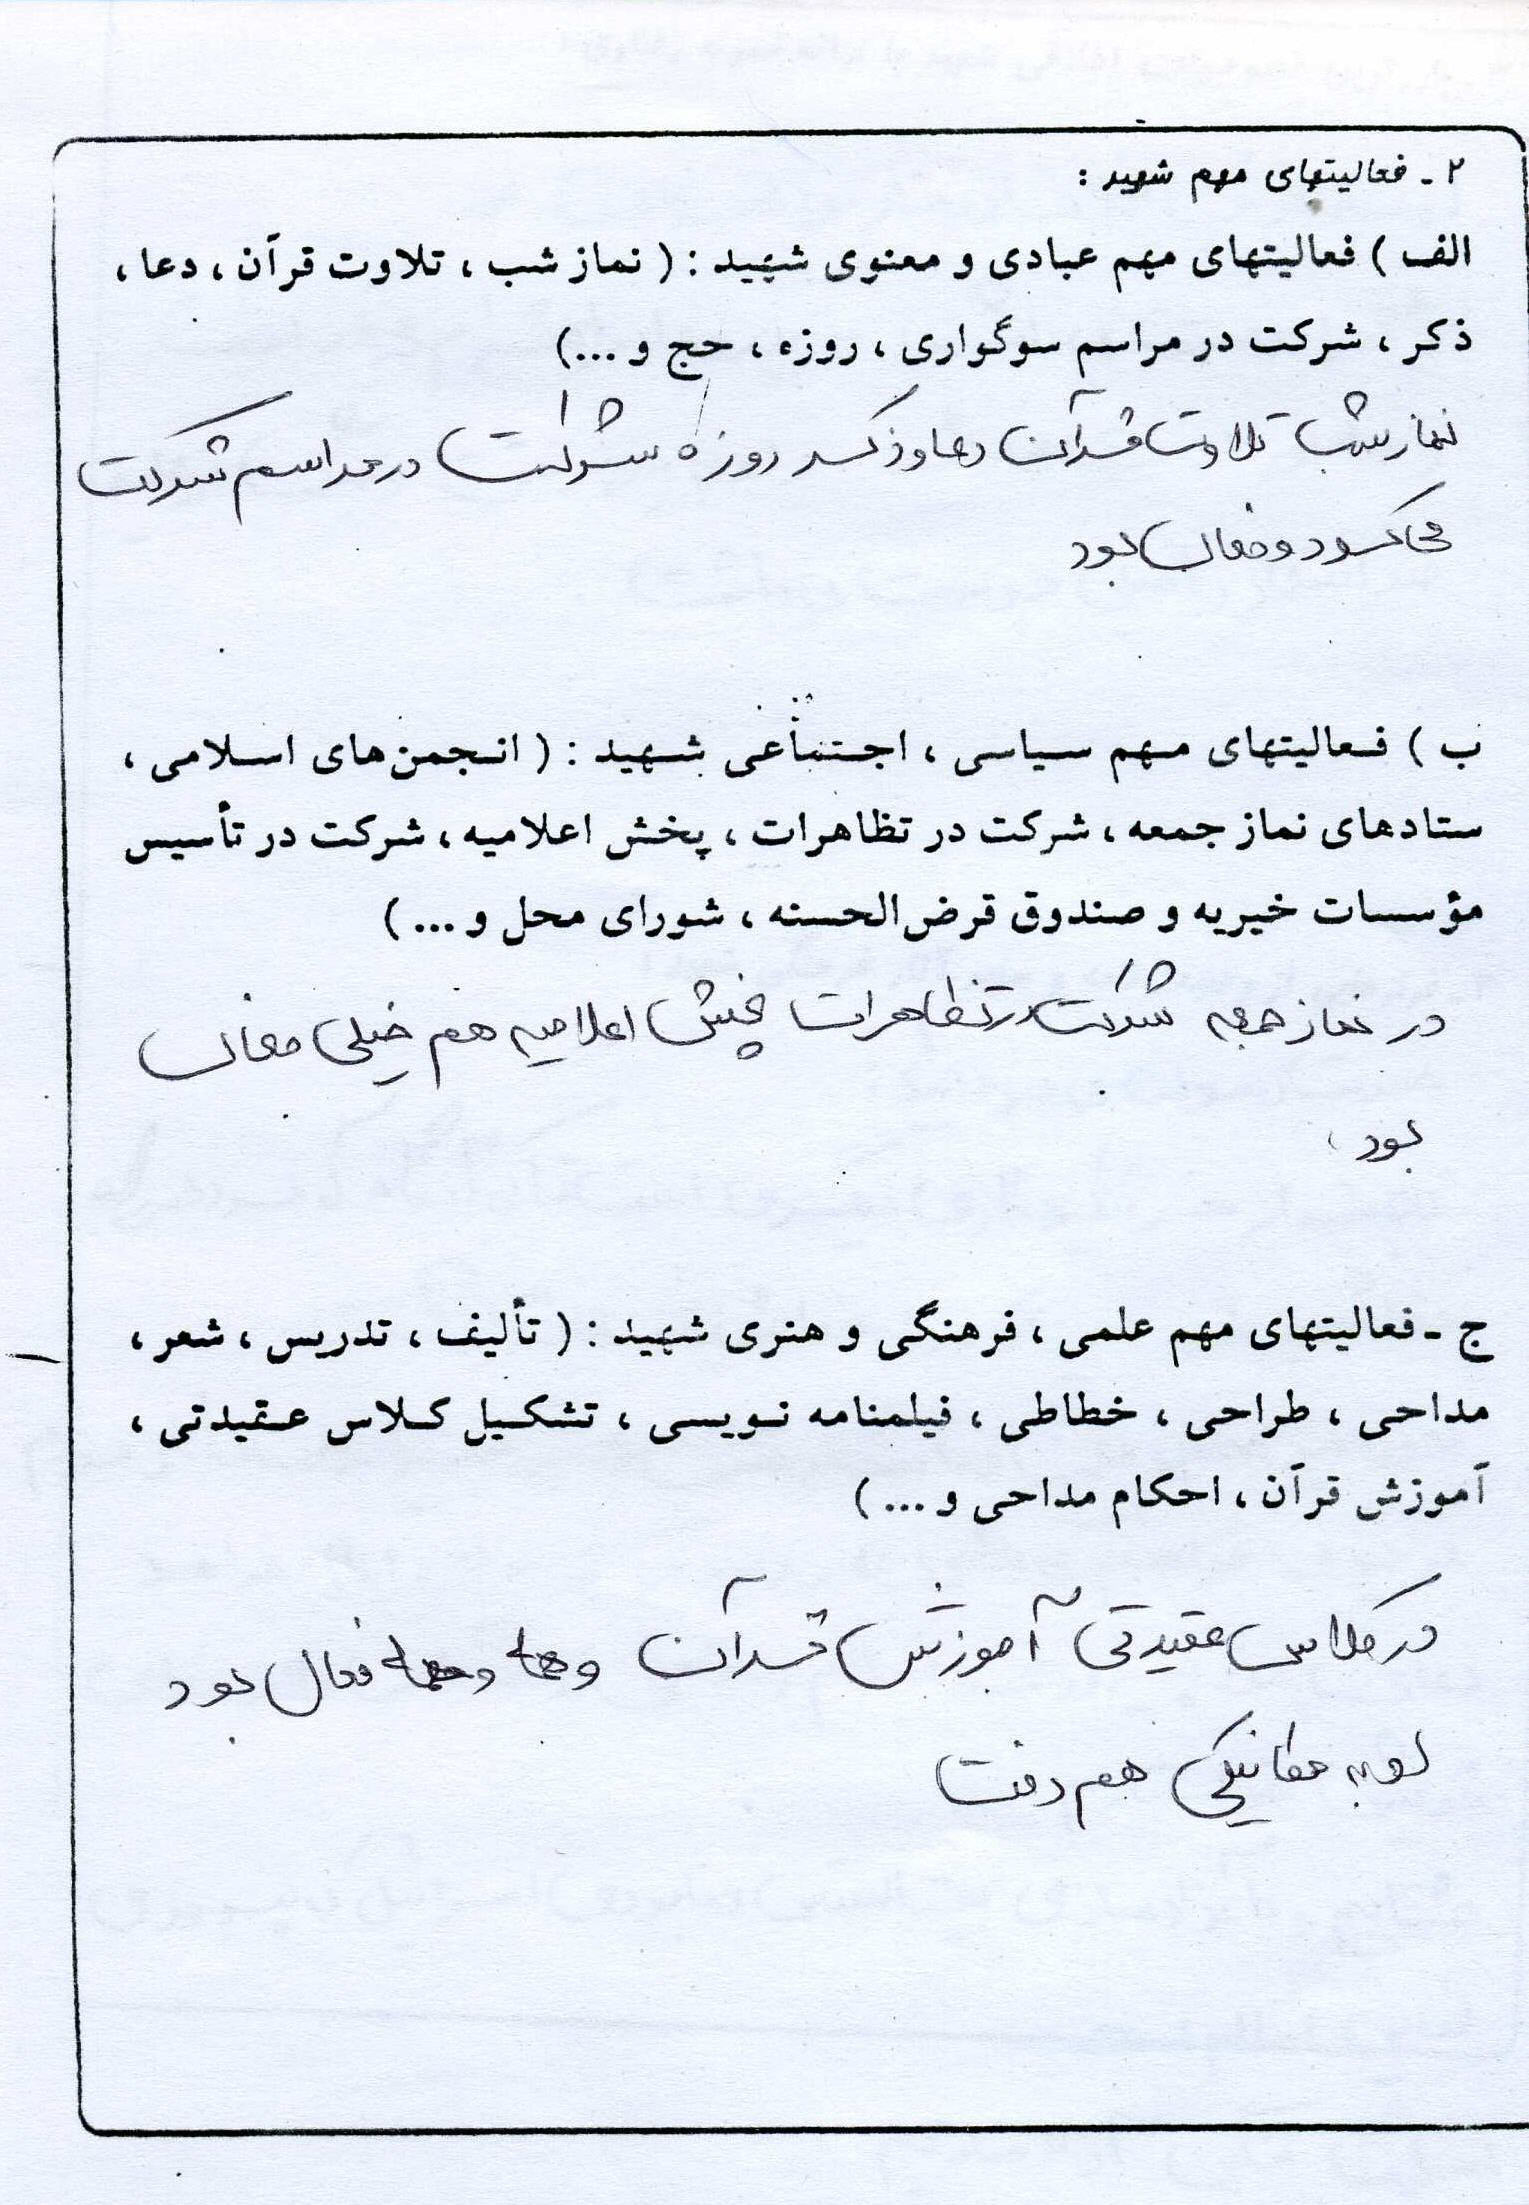 ۲ - فعالیتهای مهم شهید :
الف ) فعالیتهای مهم عبادی و معنوی شهید : ( نماز شب ، تلاوت قرآن ، دعا ،
ذکر ، شرکت در مراسم سوگواری ، روزه ، حج و ...)
نماز شب تلاوت قرآن دعا و ذکر روزه شرکت در مراسم شرکت
می کرد و فعال بود
ب ) فعالیتهای مهم سیاسی ، اجتماعی شهید : ( انجمن های اسلامی ،
ستادهای نماز جمعه ، شرکت در تظاهرات ، پخش اعلامیه ، شرکت در تأسیس
مؤسسات خیریه و صندوق قرض الحسنه ، شورای محل و ... )
در نماز جمعه شرکت در تظاهرات پخش اعلامیه هم خیلی فعال
بود
ج - فعالیتهای مهم علمی ، فرهنگی و هنری شهید : ( تألیف ، تدریس ، شعر ،
مداحی ، طراحی ، خطاطی ، فیلمنامه نویسی ، تشکیل کلاس عقیدتی ،
آموزش قرآن ، احکام مداحی و ... )
در کلاس عقیدتی آموزش قرآن و همه و همه فعال بود
مکانیکی هم رفت